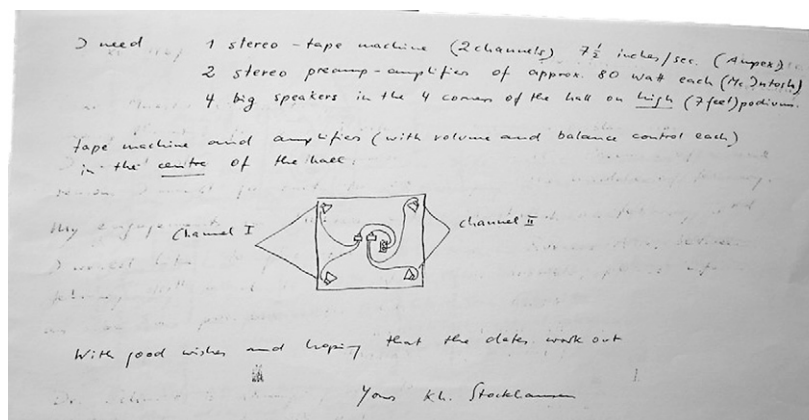 I need 1 stereo-tape machine (2 channels) 7½ inches/sec. (Ampex)
2 stereo preamp-amplifier of approx. 80 watt each (Mc.Intosh)
4 big speakers in the 4 corners of the hall on high (7 feet) podiums.
tape machine and amplifier (with volume and balance control each)
in the centre of the hall.
Channel I
Channel II
With good wishes and hoping that the dates work out
Yours Kh. Stockhausen